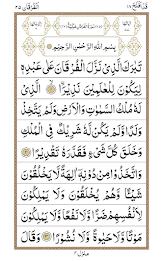 قد افلح ١٨
الفرقان ٢٥
بِسْمِ اللّٰهِ الرَّحْمٰنِ الرَّحِيْمِ
تَبٰرَكَ الَّذِيْ نَزَّلَ الْفُرْقَانَ عَلٰى عَبْدِهٖ
لِيَكُوْنَ لِلْعٰلَمِيْنَ نَذِيْرًا الَّذِيْ
لَهٗ مُلْكُ السَّمٰوٰتِ وَالْاَرْضِ وَلَمْ يَتَّخِذْ
وَلَدًا وَّلَمْ يَكُنْ لَّهٗ شَرِيْكٌ فِي الْمُلْكِ
وَخَلَقَ كُلَّ شَيْءٍ فَقَدَّرَهٗ تَقْدِيْرًا
وَاتَّخَذُوْا مِنْ دُوْنِهٖٓ اٰلِهَةً لَّا يَخْلُقُوْنَ
شَيْـًٔا وَّهُمْ يُخْلَقُوْنَ وَلَا يَمْلِكُوْنَ
لِاَنْفُسِهِمْ ضَرًّا وَّلَا نَفْعًا وَّلَا يَمْلِكُوْنَ
مَوْتًا وَّلَا حَيٰوةً وَّلَا نُشُوْرًا وَقَالَ